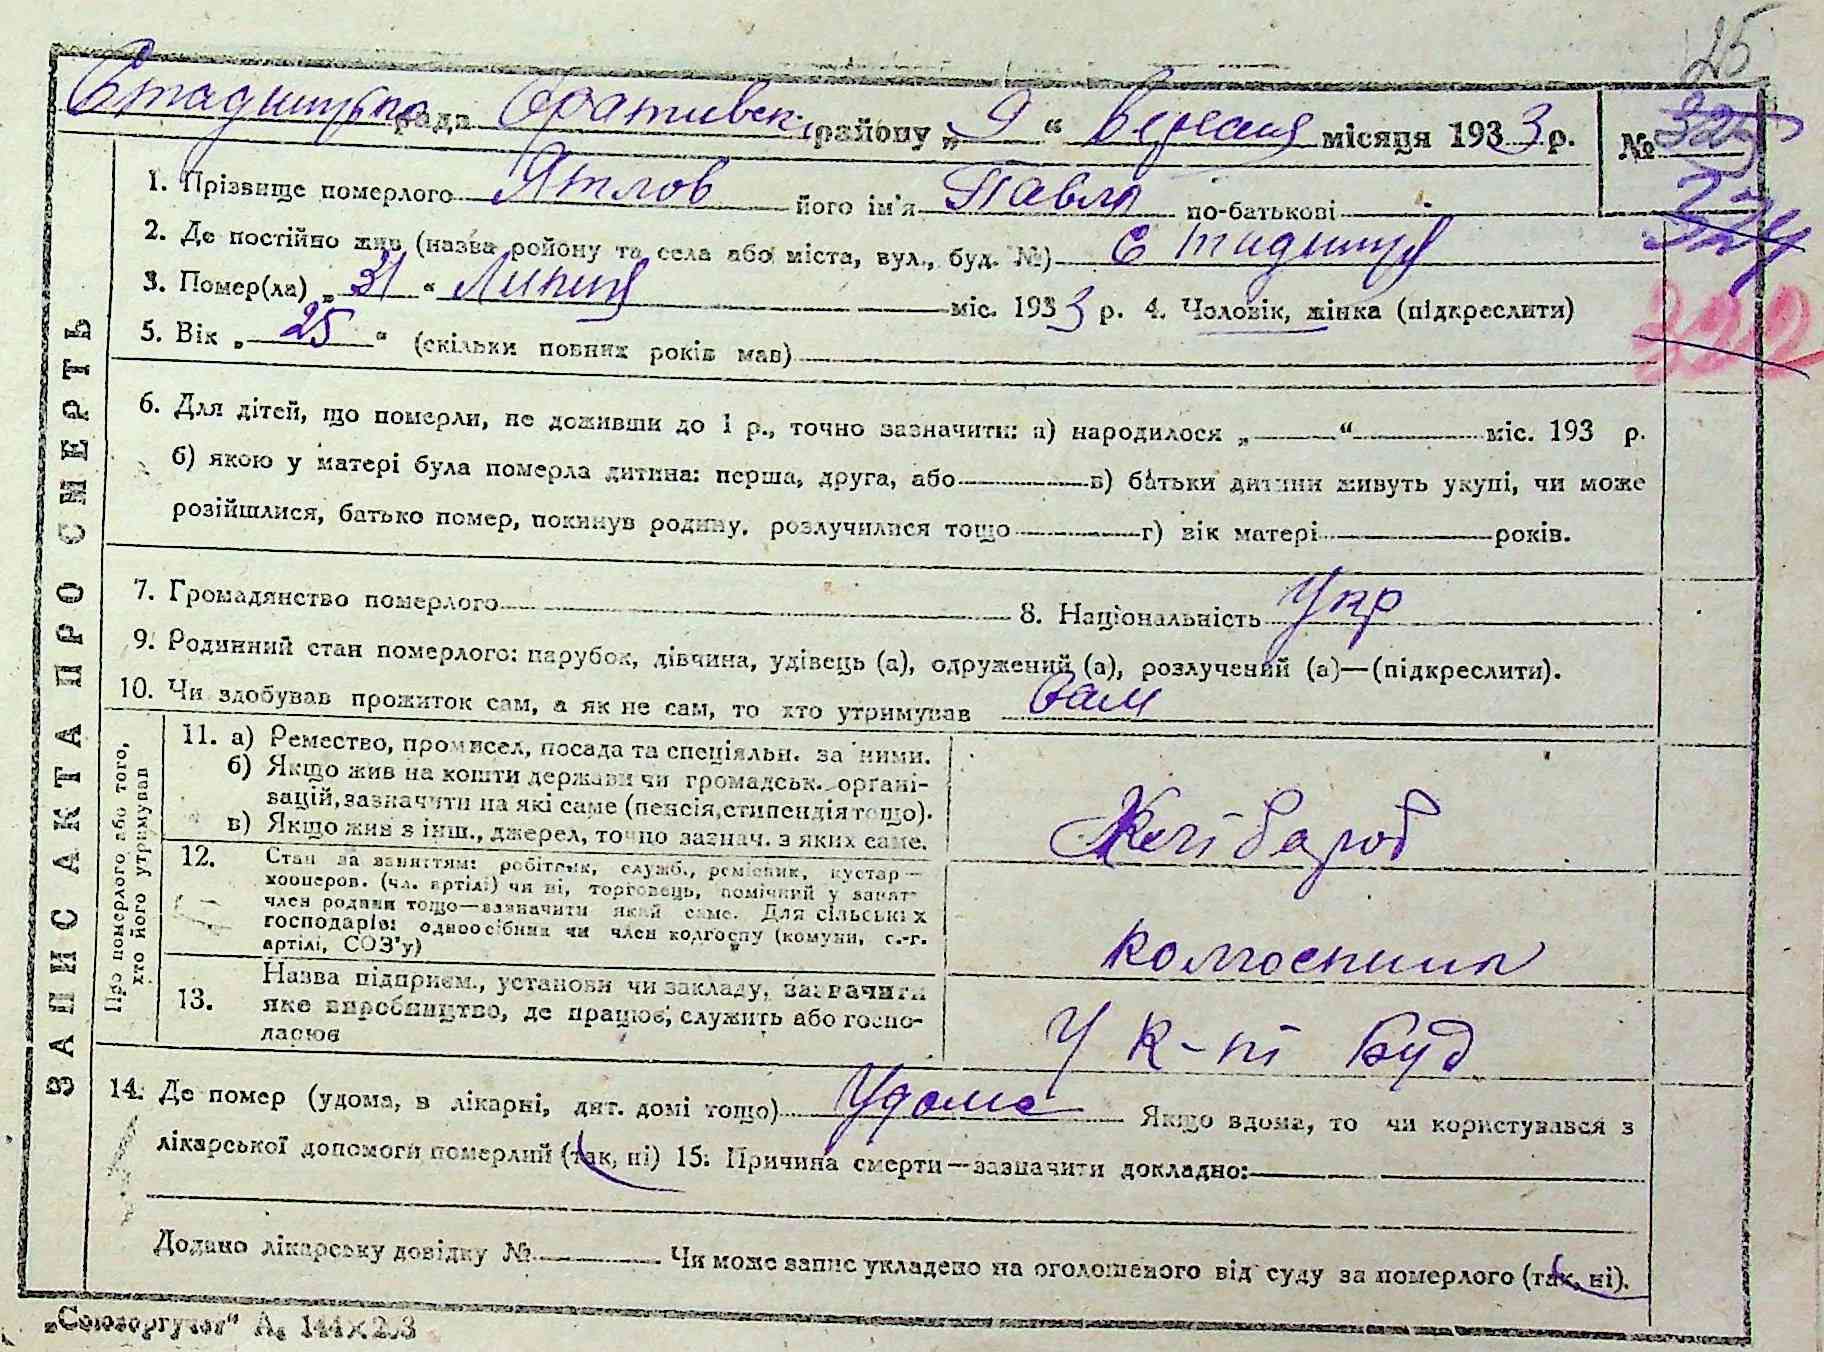 25
Стадницька рада Оратівськ. району „9“ Вересня місяця 1933 р. № 325
1. Прізвище померлого Ятлов його ім'я Павло по-батькові -
324
2. Де постійно жив (назва району та села або міста, вул., буд. №) с Стадниця
3. Помер(ла) „31“ Липня міс. 1933 р. 4. Чоловік, жінка (підкреслити)
322
5. Вік „25“ (скільки повних років мав)
6. Для дітей, що померли, не доживши до 1 р., точно зазначити: а) народилося „ “ міс. 193 р.
б) якою у матері була померла дитина: перша, друга, або в) батьки дитини живуть укупі, чи може
розійшлися, батько помер, покинув родину, розлучилися тощо г) вік матері років.
7. Громадянство померлого 8. Національність Укр
9. Родинний стан померлого: парубок, дівчина, удівець (а), одружений (а), розлучений (а)—(підкреслити).
10. Чи здобував прожиток сам, а як не сам, то хто утримував Сам
11. а) Ремество, промисел, посада та спеціяльн. за ними.
б) Якщо жив на кошти держави чи громадськ. органі-
зацій, зазначити на які саме (пенсія, стипендія тощо).
в) Якщо жив з інш., джерел, точно зазнач. з яких саме.
Хлібороб
12. Стан за заняттям: робітник, служб., ремісник, кустар—
кооперов. (чл. артілі) чи ні, торговець, помічний у занят-
член родини тощо—зазначити який саме. Для сільських
господарів: одноосібник чи член колгоспу (комуни, с.-г.
артілі, СОЗ'у)
колгоспник
13. Назва підприєм., установи чи закладу, зазначити
яке виробництво, де працює, служить або госпо-
дарює
У к-пі Буд
Про померлого або того,
хто його утримував
14. Де помер (удома, в лікарні, дит. домі тощо) Удома Якщо вдома, то чи користувався з
лікарської допомоги померлий (так, ні) 15. Причина смерти—зазначити докладно:
Додано лікарську довідку № Чи може запис укладено на оголошеного від суду за померлого (так, ні).
ЗАПИС АКТА ПРО СМЕРТЬ
„Союзоргучет“ А₆ 144×2.3